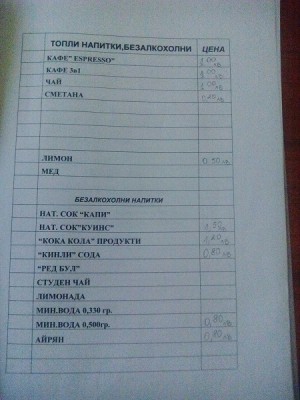 ТОПЛИ НАПИТКИ,БЕЗАЛКОХОЛНИ ЦЕНА
КАФЕ" ESPRESSO" 1,00 лв.
КАФЕ 3в1 1,00 лв.
ЧАЙ 1,00 лв.
СМЕТАНА
ЛИМОН
МЕД
БЕЗАЛКОХОЛНИ НАПИТКИ
НАТ. СОК "КАПИ"
НАТ. СОК"КУИНС"
"КОКА КОЛА" ПРОДУКТИ
"КИНЛИ" СОДА
"РЕД БУЛ"
СТУДЕН ЧАЙ
ЛИМОНАДА
МИН.ВОДА 0,330 гр.
МИН.ВОДА 0,500гр. 0,80 лв.
АЙРЯН